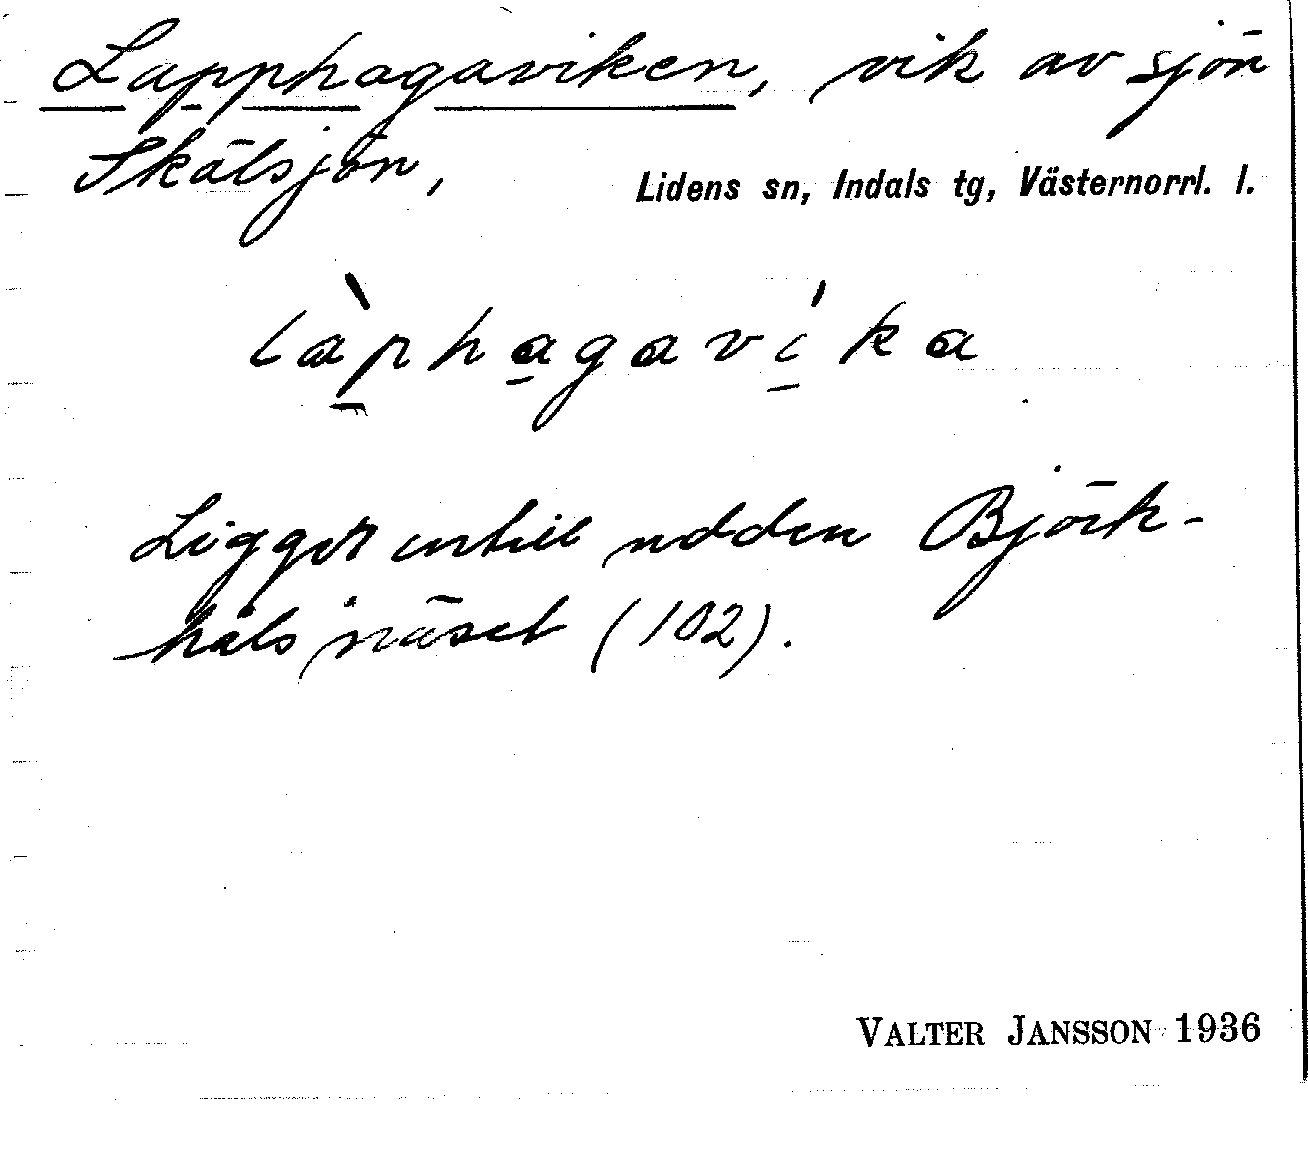 Lapphagaviken, vik av sjön
Skälsjön,
Lidens sn, Indals tg, Västernorrl. l.
làphagavíka
Ligger intill udden Björk-
hälsnäset (102).
VALTER JANSSON 1936